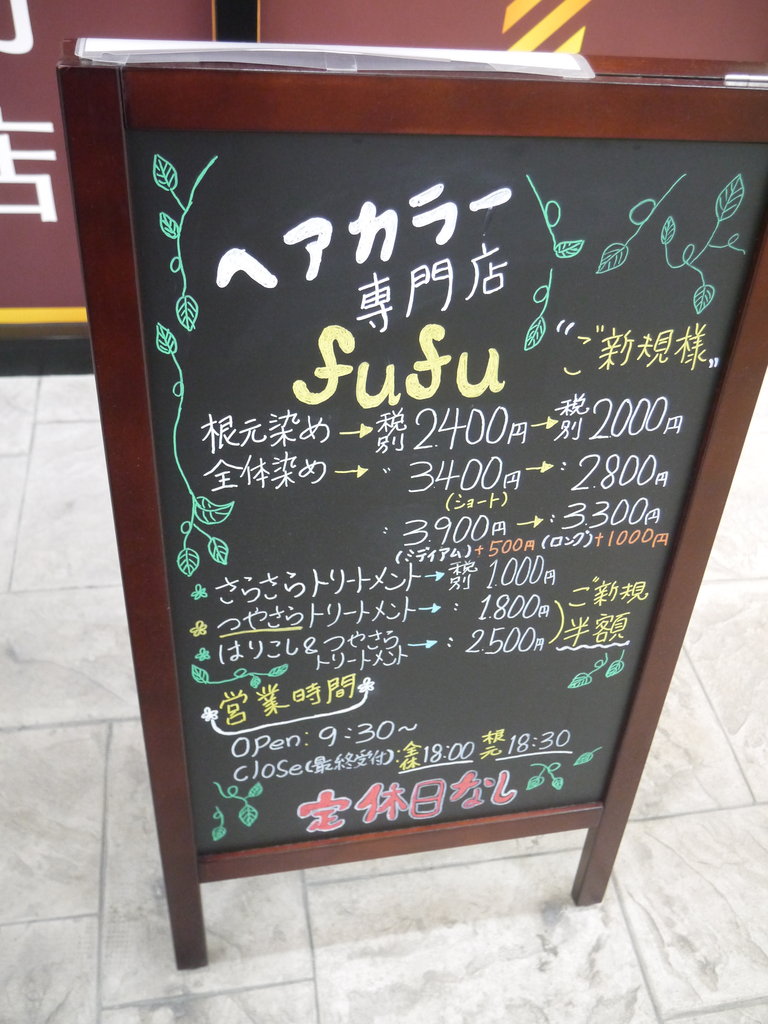 店
ヘアカラー
専門店
fufu
"ご新規様"
根元染め→税別2.400円→税別2.000円
全体染め→〃3400円→:2.800円
(ショート)
:3.900円→:3.300円
(ミディアム)+500円(ロング)+1000円
さらさらトリートメント→税別1.000円
つやさらトリートメント→:1.800円
はりこし&つやさらトリートメント→:2.500円
ご新規
半額
営業時間
open:9:30~
close(最終受付):全体18:00 根元18:30
定休日なし